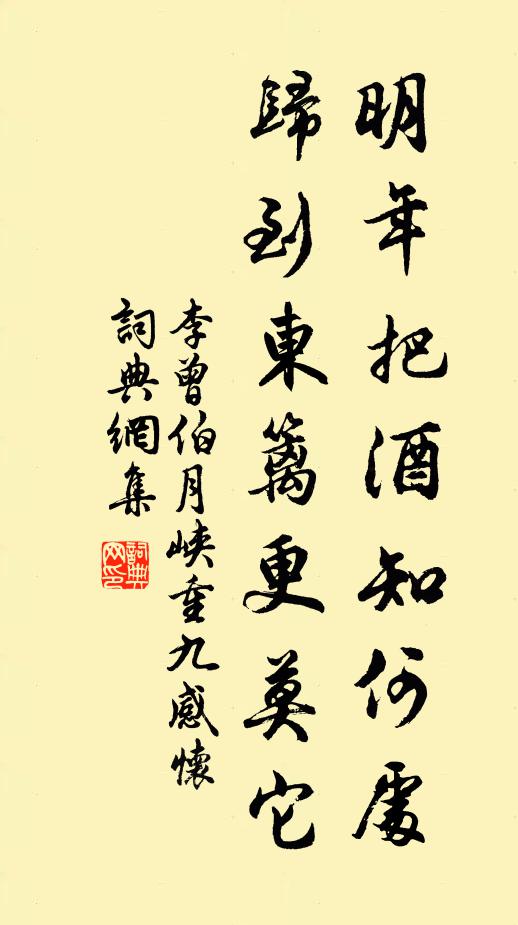 明年把酒知何處
歸到東籬更莫它
李曾伯月峽重九感懷
詞典網集
詞典网印